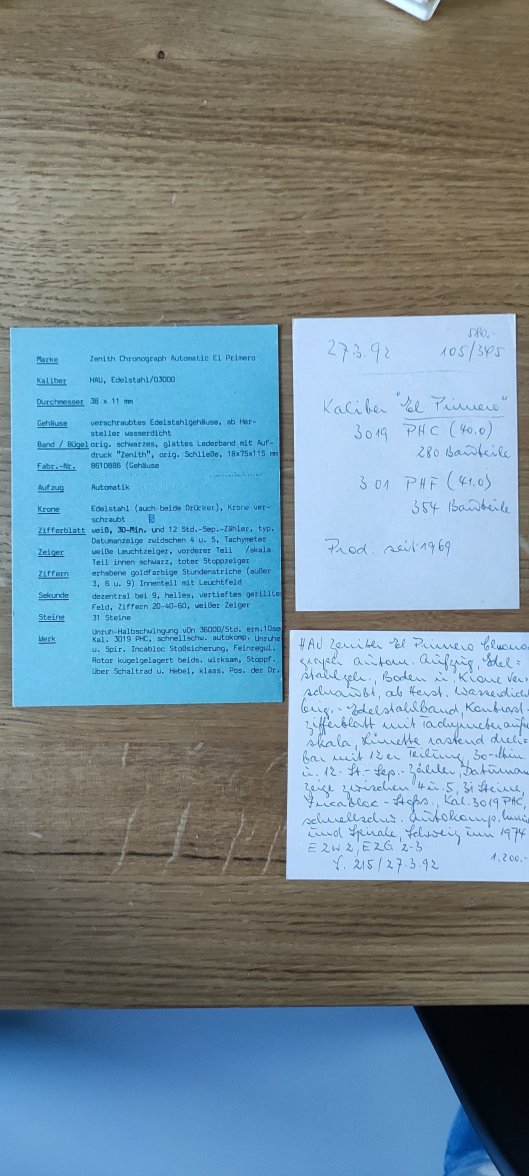 Marke Zenith Chronograph Automatic El Primero
Kaliber HAU, Edelstahl/03000
Durchmesser 38 x 11 mm
Gehäuse verschraubtes Edelstahlgehäuse, ab Her-
steller wasserdicht
Band / Bügel orig. schwarzes, glattes Lederband mit Auf-
druck "Zenith", orig. Schließe, 18x75x115 mm
Fabr.-Nr. 861D886 (Gehäuse
Aufzug Automatik
Krone Edelstahl (auch beide Drücker), Krone ver-
schraubt
Zifferblatt weiß, 30-Min. und 12 Std.-Sep.-Zähler, typ.
Datumanzeige zwidschen 4 u. 5, Tachymeter
Zeiger weiße Leuchtzeiger, vorderer Teil /skala
Teil innen schwarz, toter Stoppzeiger
Ziffern erhabene goldfarbige Stundenstriche (außer
3, 6 u. 9) Innenteil mit Leuchtfeld
Sekunde dezentral bei 9, helles, vertieftes gerilltes
Feld, Ziffern 20-40-60, weißer Zeiger
Steine 31 Steine
Unruh-Halbschwingung vOn 36000/Std. erm.1Dse
Werk Kal. 3019 PHC, schnellschw. autokomp. Unruhe
u. Spir. Incabloc Stoßsicherung, Feinregul.
Rotor kugelgelagert beids. wirksam, Stoppf.
über Schaltrad u. Hebel, klass. Pos. der Dr.
580,-
27.3.92 105/395
Kaliber "El Primero"
3019 PHC (40.0)
280 Bauteile
301 PHF (41.0)
354 Bauteile
Prod. seit 1969
HAU Zenither El Primero Chrono-
graph autom. Aufzug, Edel-
stahlgeh., Boden u. Krone ver-
schraubt, ab Herst. wasserdicht
orig.- Edelstahlband, Kontrast-
zifferblatt mit Tachymeteraußen
skala, Lünette rastend dreh-
bar mit 12er Teilung, 30-Min.
u. 12-St.-Sep.-Zähler, Datuman
zeige zwischen 4 u. 5, 31 Steine,
Incabloc-Stoßs., Kal. 3019 PHC,
schnellschw. autokomp. Unruh
und Spirale, Schweiz um 1974
EZW 2, EZG 2-3
L. 215/27.3.92 1.200.-